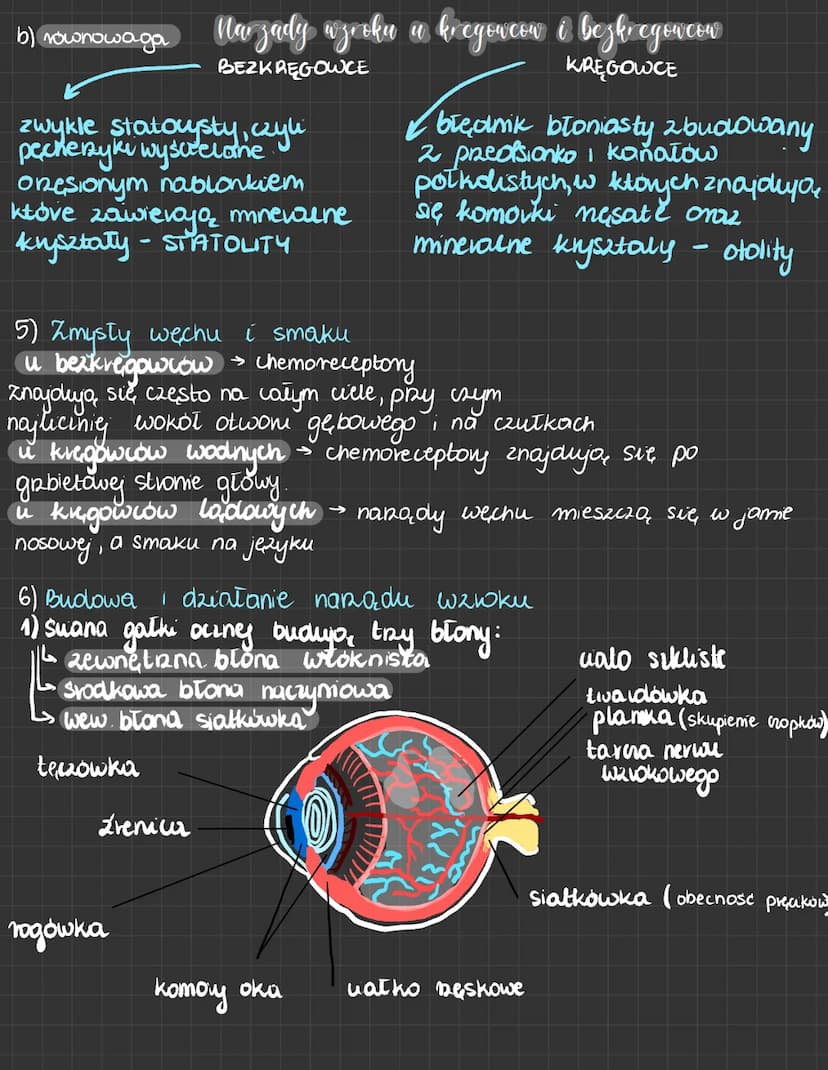 b) równowaga
Narządy wzroku u kręgowców i bezkręgowców
BEZKRĘGOWCE
KRĘGOWCE
zwykle statocysty, czyli
pęcherzyki wyścielane
orzęsionym nabłonkiem
które zawierają mineralne
kryształy - STATOLITY
błędnik błoniasty zbudowany
z przedsionka i kanałów
półkolistych, w których znajdują
się komórki rzęsate oraz
mineralne kryształy - otolity
5) Zmysły węchu i smaku
u bezkręgowców → chemoreceptory
znajdują się często na całym ciele, przy czym
najliczniej wokół otworu gębowego i na czułkach
u kręgowców wodnych → chemoreceptory znajdują się po
grzbietowej stronie głowy.
u kręgowców lądowych → narządy węchu mieszczą się w jamie
nosowej, a smaku na języku
6) Budowa i działanie narządu wzroku
1) Ściana gałki ocznej budują trzy błony:
zewnętrzna błona włóknista
środkowa błona naczyniowa
wew. błona siatkówka
ciało szkliste
twardówka
plamka (skupienie czopków)
tarcza nerwu
wzrokowego
tęczówka
źrenica
siatkówka (obecność pręcików
rogówka
komory oka
ciałko rzęskowe